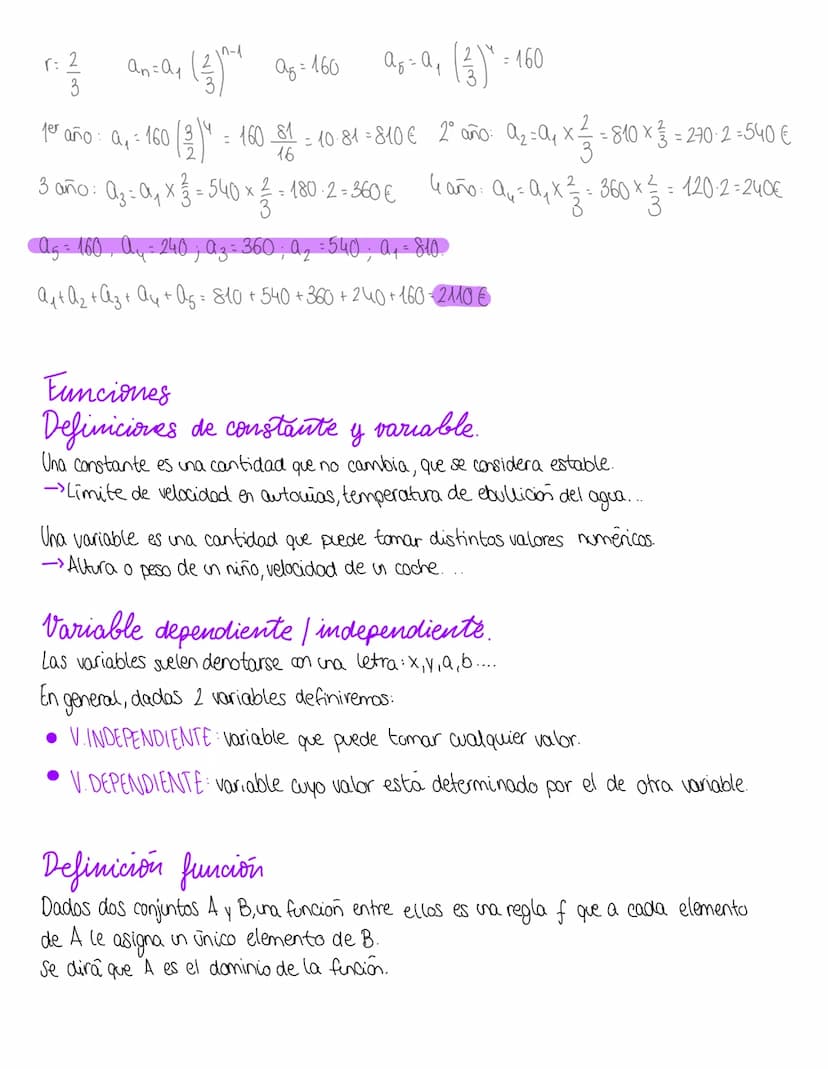 r: 2/3 an=a1 (2/3)^n-1 a5=160 a5=a1 (2/3)^4 = 160
1er año: a1=160 (3/2)^4 = 160 81/16 = 10·81=810€ 2º año: a2=a1 x 2/3 = 810 x 2/3 = 270·2=540€
3 año: a3=a1 x 2/3 = 540 x 2/3 = 180·2=360€ 4 año: a4=a1 x 2/3 = 360 x 2/3 = 120·2=240€
a5=160, a4=240; a3=360; a2=540; a1=810.
a1+a2+a3+a4+a5=810+540+360+240+160=2110€
Funciones
Definiciones de constante y variable.
Una constante es una cantidad que no cambia, que se considera estable.
→Límite de velocidad en autovías, temperatura de ebullición del agua...
Una variable es una cantidad que puede tomar distintos valores numéricos.
→Altura o peso de un niño, velocidad de un coche. ..
Variable dependiente / independiente.
Las variables suelen denotarse con una letra: x,y,a,b....
En general, dadas 2 variables definiremos:
• V.INDEPENDIENTE: variable que puede tomar cualquier valor.
• V.DEPENDIENTE: variable cuyo valor está determinado por el de otra variable.
Definición función
Dados dos conjuntos A y B, una función entre ellos es una regla f que a cada elemento
de A le asigna un único elemento de B.
Se dirá que A es el dominio de la función.